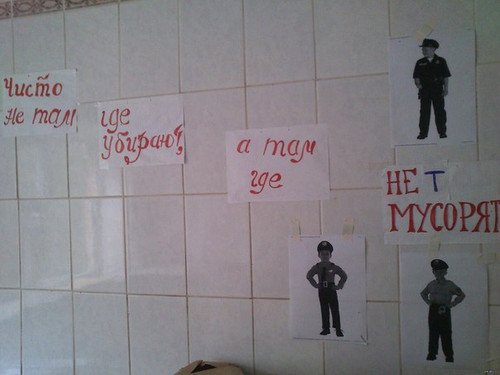 Чисто
не там
где
убирают,
а там
где
НЕТ
МУСОРЯТ